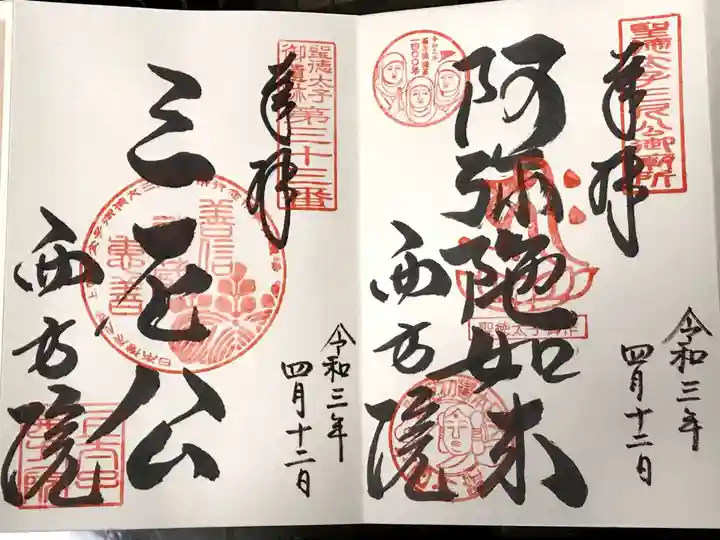 聖徳太子三尼公御廟所
奉拝
阿弥陀如来
西方院
令和三年
四月十二日
一四〇〇年
聖徳太子御作
聖徳太子
御遺跡
第三十三番
奉拝
三尼公
西方院
令和三年
四月十二日
善信
恵善